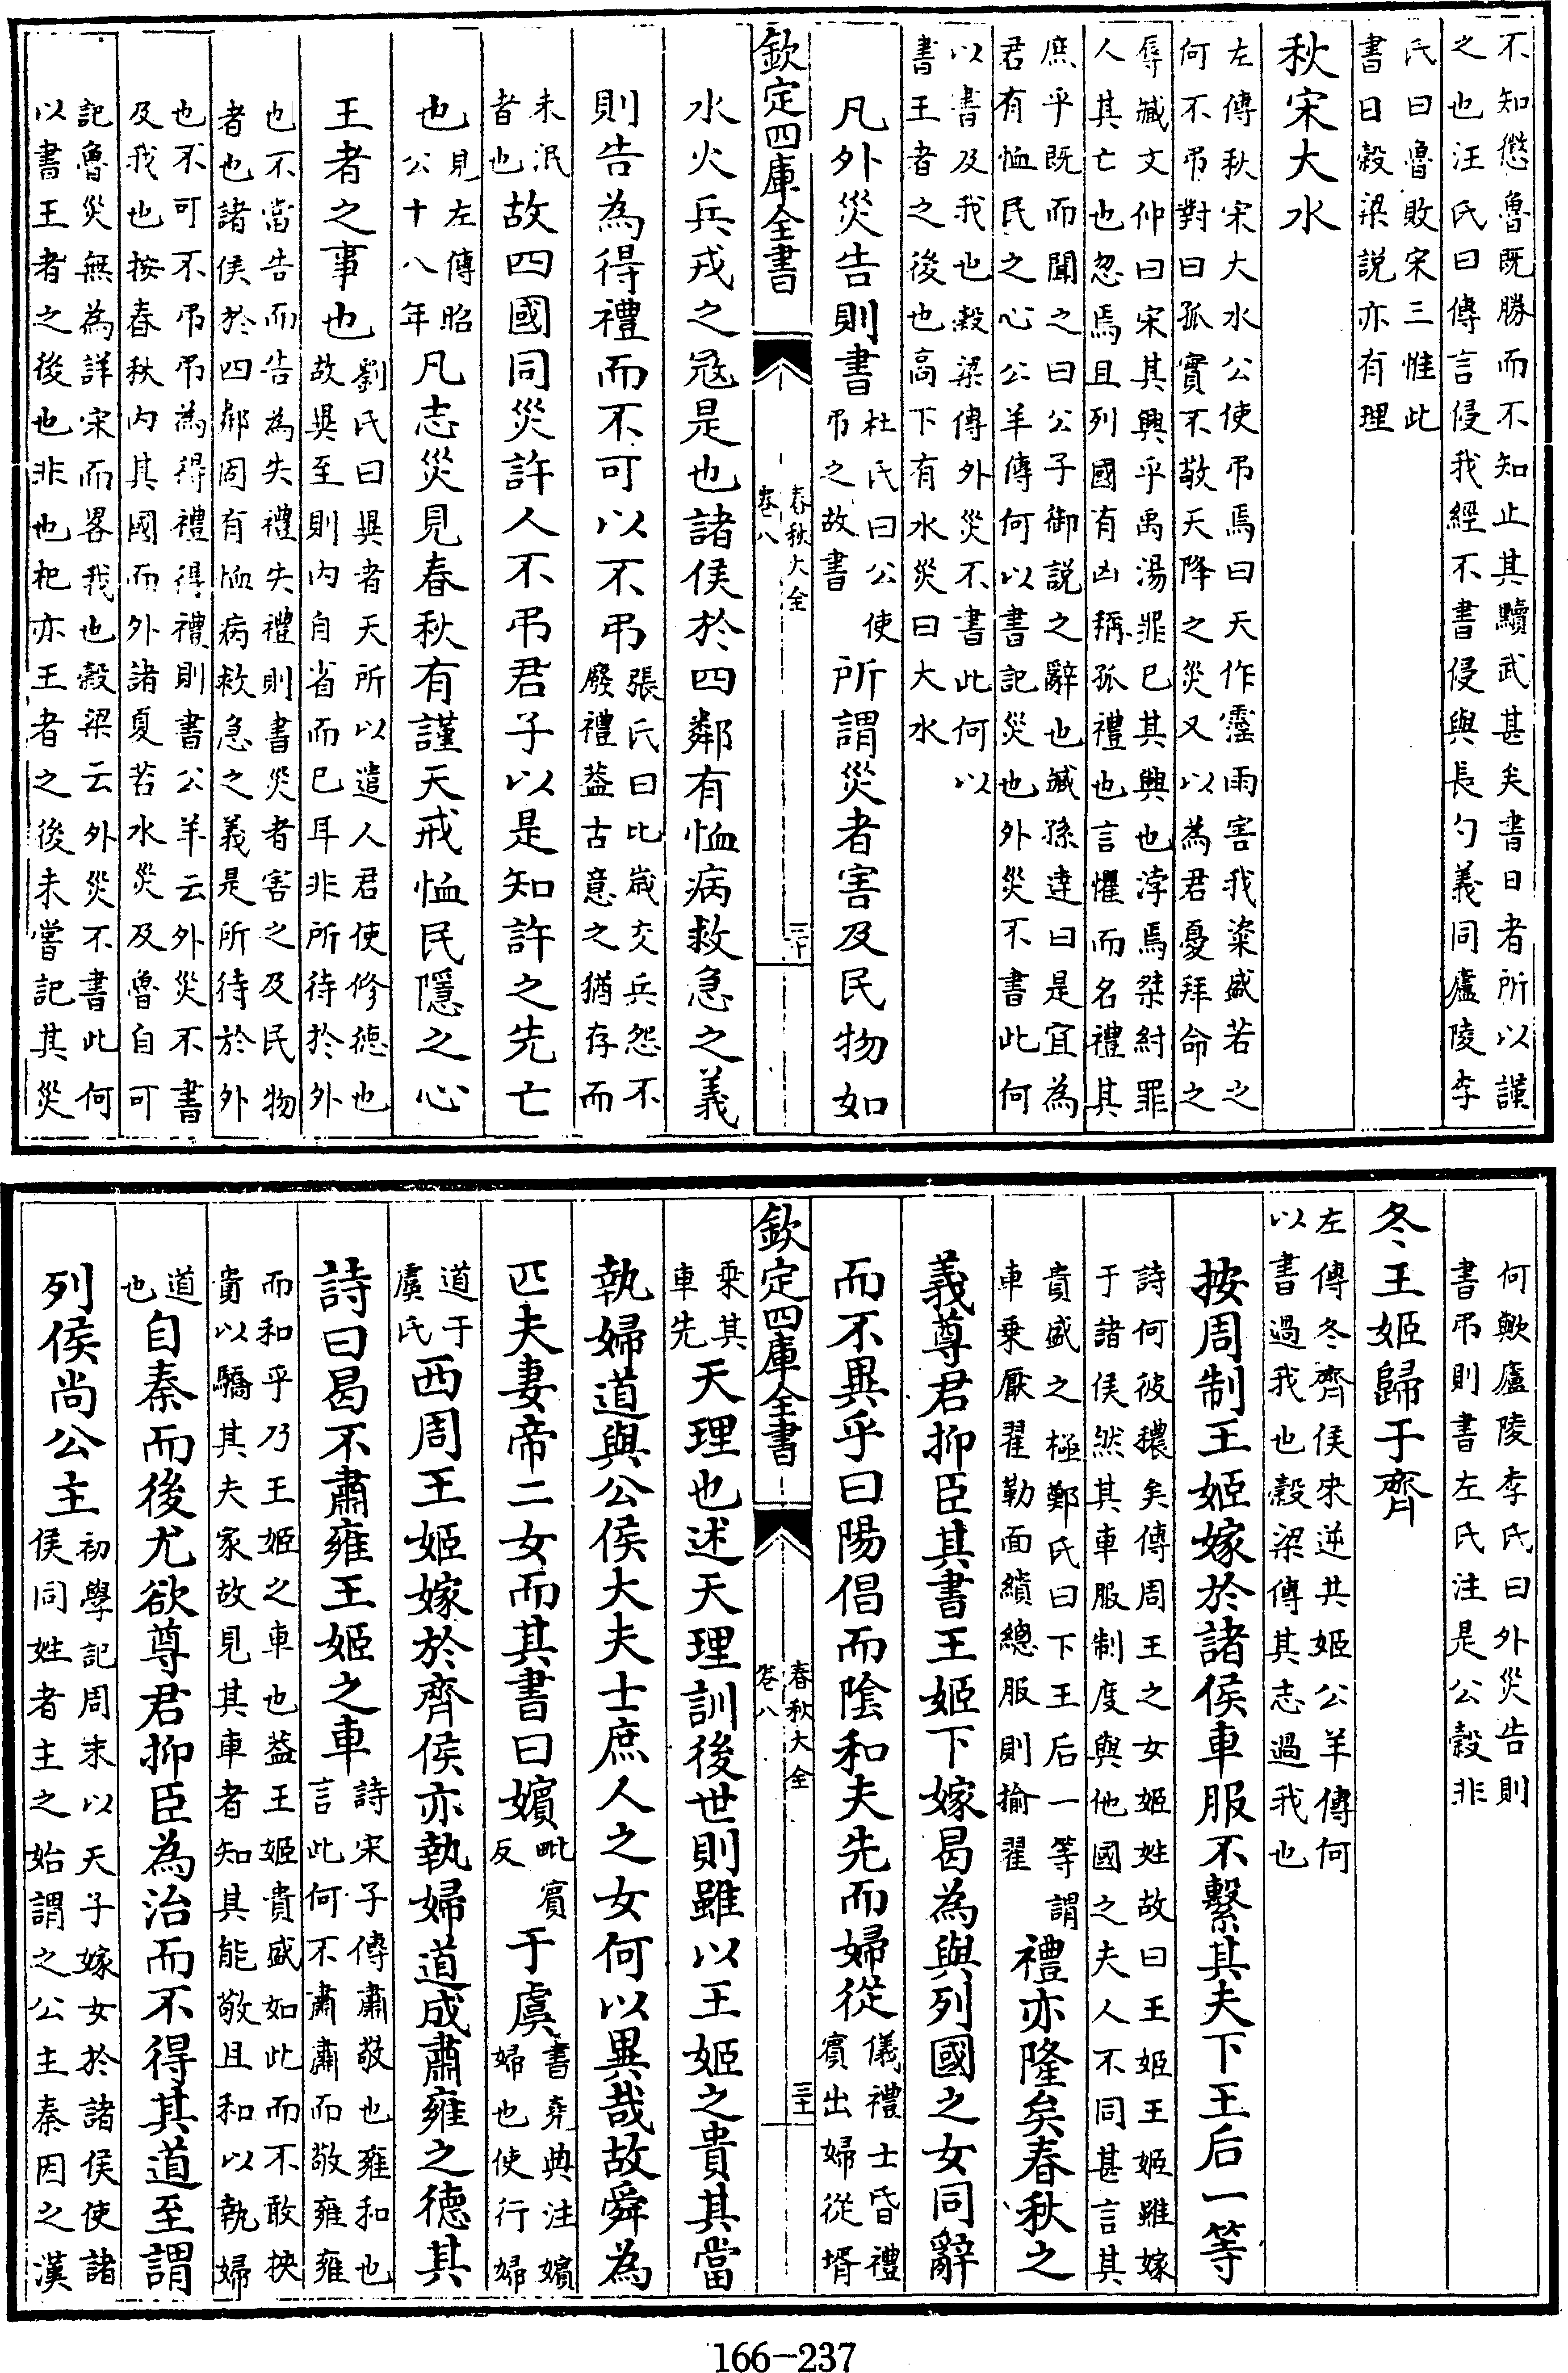 不知懲魯既勝而不知止其黷武甚矣書日者所以謹
之也汪氏曰傳言侵我經不書侵與長勺義同廬陵李
氏曰魯敗宋三惟此
書日穀梁説亦有理
秋宋大水
左傳秋宋大水公使弔焉曰天作霪雨害我粢盛若之
何不弔對曰孤實不敬天降之災又以為君憂拜命之
辱臧文仲曰宋其興乎禹湯罪已其興也浡焉桀紂罪
人其亡也忽焉且列國有凶稱孤禮也言懼而名禮其
庶乎既而聞之曰公子御説之辭也臧孫達曰是宜為
君有恤民之心公羊傳何以書記災也外災不書此何
以書及我也穀梁傳外災不書此何以
書王者之後也高下有水災曰大水
凡外災告則書
杜氏曰公使
弔之故書
所謂災者害及民物如
欽定四庫全書
春秋大全
卷八
三十
水火兵戎之㓂是也諸侯於四鄰有恤病救急之義
則告為得禮而不可以不弔
張氏曰比嵗交兵怨不
廢禮葢古意之猶存而
未泯
者也
故四國同災許人不弔君子以是知許之先亡
也
見左傳昭
公十八年
凡志災見春秋有謹天戒恤民隱之心
王者之事也
劉氏曰異者天所以遣人君使修德也
故異至則内自省而已耳非所待於外
也不當告而告為失禮失禮則書災者害之及民物
者也諸侯於四鄰固有恤病救急之義是所待於外
也不可不弔弔為得禮得禮則書公羊云外災不書
及我也按春秋内其國而外諸夏若水災及魯自可
記魯災無為詳宋而畧我也穀梁云外災不書此何
以書王者之後也非也杞亦王者之後未嘗記其災
何歟廬陵李氏曰外災告則
書弔則書左氏注是公穀非
冬王姬歸于齊
左傳冬齊侯來逆共姬公羊傳何
以書過我也穀梁傳其志過我也
按周制王姬嫁於諸侯車服不繫其夫下王后一等
詩何彼襛矣傳周王之女姬姓故曰王姬王姬雖嫁
于諸侯然其車服制度與他國之夫人不同甚言其
貴盛之極鄭氏曰下王后一等謂
車乗厭翟勒面繢總服則揄翟
禮亦隆矣春秋之
義尊君抑臣其書王姬下嫁曷為與列國之女同辭
而不異乎曰陽倡而隂和夫先而婦從
儀禮士昏禮
賓出婦從壻
欽定四庫全書
春秋大全
卷八
三十一
乗其
車先
天理也述天理訓後世則雖以王姬之貴其當
執婦道與公侯大夫士庶人之女何以異哉故舜為
匹夫妻帝二女而其書曰嬪
毗賓
反
于虞
書堯典注嬪
婦也使行婦
道于
虞氏
西周王姬嫁於齊侯亦執婦道成肅雍之徳其
詩曰曷不肅雍王姬之車
詩宋子傳肅敬也雍和也
言此何不肅肅而敬雍雍
而和乎乃王姬之車也葢王姬貴盛如此而不敢挾
貴以驕其夫家故見其車者知其能敬且和以執婦
道
也
自秦而後尤欲尊君抑臣為治而不得其道至謂
列侯尚公主
初學記周末以天子嫁女於諸侯使諸
侯同姓者主之始謂之公主秦因之漢
166-237